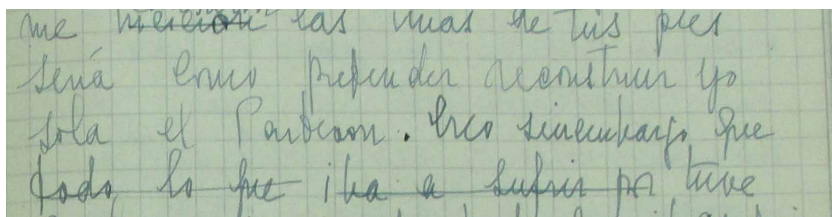 me hicieron las uñas de tus pies
será como pretender reconstruir yo
sola el Partenon. Creo sinembargo que
todo lo que iba a sufrir por tuve